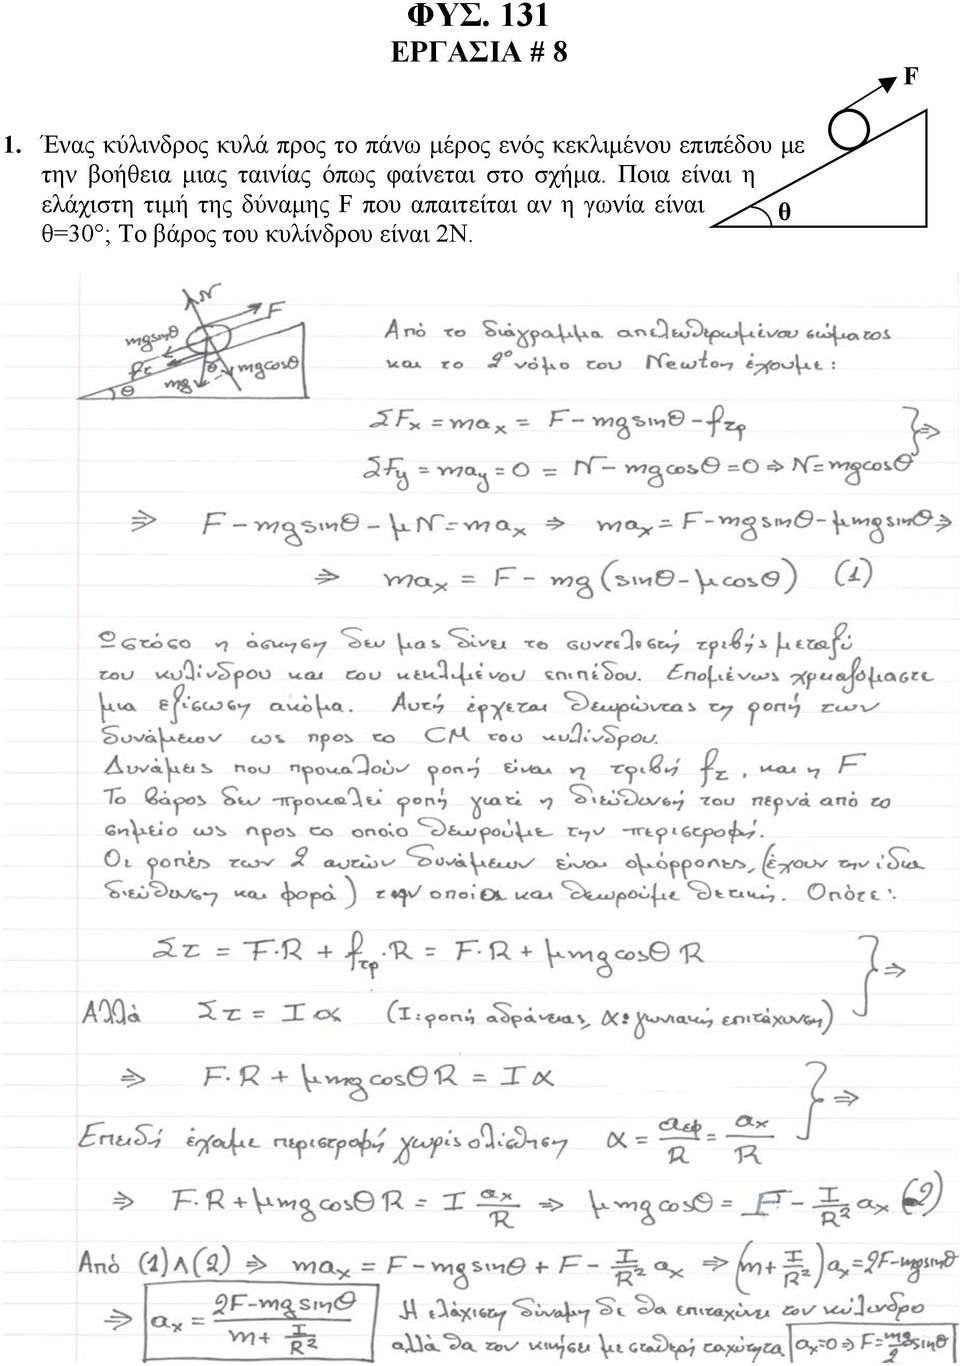 ΦΥΣ. 131
ΕΡΓΑΣΙΑ # 8
F
1. Ένας κύλινδρος κυλά προς το πάνω μέρος ενός κεκλιμένου επιπέδου με
την βοήθεια μιας ταινίας όπως φαίνεται στο σχήμα. Ποια είναι η
ελάχιστη τιμή της δύναμης F που απαιτείται αν η γωνία είναι
θ
θ=30° ; Το βάρος του κυλίνδρου είναι 2Ν.
N F
mgsinθ
fτ θ mgcosθ
θ mg
Από το διάγραμμα απελευθερωμένου σώματος
και το 2ο νόμο του Newton έχουμε :
ΣFx = max = F - mgsinθ - fτρ
ΣFy = may = 0 = N - mgcosθ = 0 ⇒ N = mgcosθ
⇒ F - mgsinθ - μN = max ⇒ max = F - mgsinθ - μmgsinθ ⇒
⇒ max = F - mg (sinθ - μcosθ) (1)
Ωστόσο η άσκηση δεν μας δίνει το συντελεστή τριβής μεταξύ
του κυλίνδρου και του κεκλιμένου επιπέδου. Επομένως χρειαζόμαστε
μια εξίσωση ακόμα. Αυτή έρχεται θεωρώντας τη ροπή των
δυνάμεων ως προς το CM του κυλίνδρου.
Δυνάμεις που προκαλούν ροπή είναι η τριβή fτ, και η F
Το βάρος δεν προκαλεί ροπή γιατί η διεύθυνσή του περνά από το
σημείο ως προς το οποίο θεωρούμε την περιστροφή.
Οι ροπές των 2 αυτών δυνάμεων είναι ομόρροπες, (έχουν την ίδια
διεύθυνση και φορά) την οποία και θεωρούμε θετική. Οπότε :
Στ = F·R + fτρ·R = F·R + μmgcosθ R
⇒
Αλλά Στ = I α (I: ροπή αδράνειας, α: γωνιακή επιτάχυνση)
⇒ F·R + μmgcosθ R = I α
⇒
Επειδή έχουμε περιστροφή χωρίς ολίσθηση α = aεφ/R = ax/R
⇒ F·R + μmgcosθ R = I ax/R ⇒ μmgcosθ = F - I/R² ax (2)
Από (1)∧(2) ⇒ max = F - mgsinθ + F - I/R² ax ⇒ (m + I/R²) ax = 2F - mgsinθ
⇒ ax = (2F - mgsinθ)/(m + I/R²) Η ελάχιστη δύναμη δε θα επιταχύνει τον κύλινδρο
αλλά θα τον κινήσει με σταθερή ταχύτητα ax = 0 ⇒ F = mg/2 sinθ